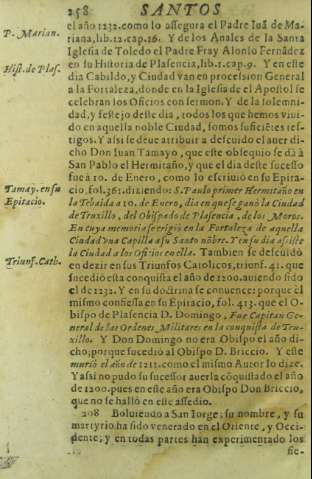 258 SANTOS
el año 1232. como lo assegura el Padre Iuã de Ma-
P. Marian.
riana, lib. 12. cap. 16. Y de los Anales de la Santa
Iglesia de Toledo el Padre Fray Alonso Fernãdez
Hist. de Plas.
en su Historia de Plasencia, lib. 1. cap. 9. Y en este
dia Cabildo, y Ciudad van en procession General
a la Fortaleza, donde en la Iglesia de el Apostol se
celebran los Oficios con sermon. Y de la solemni-
dad, y festejo deste dia, todos los que hemos vivi-
do en aquella noble Ciudad, somos suficiẽtes tes-
tigos. Y assi se deve atribuir a descuido el aver di-
cho Don Iuan Tamayo, que este obsequio se dà à
San Pablo el Hermitaño, y que el dia deste sucesso
fue à 10. de Enero, como lo escriviò en su Epita-
Tamay. en su
Epitacio.
cio, fol. 361. diziendo: S. Paulo primer Hermitaño en
la Tebaida a 10. de Enero, dia en que se ganò la Ciudad
de Truxillo, del Obispado de Plasencia, de los Moros.
En cuya memoria se erigiò en la Fortaleza de aquella
Ciudad vna Capilla a su Santo nõbre. Y en su dia assiste
la Ciudad a los Oficios en ella. Tambien se descuidò
Triunf. Cath.
en dezir en sus Triunfos Catolicos, triunf. 41. que
sucediò esta conquista el año de 1200. aviendo sido
el de 1232. Y en su doctrina se convence: porque el
mismo confiessa en su Epitacio, fol. 413. que el O-
bispo de Plasencia D. Domingo, Fue Capitan Ge-
neral de las Ordenes Militares en la conquista de Tru-
xillo. Y Don Domingo no era Obispo el año di-
cho; porque sucediò al Obispo D. Briccio. Y este
murio el año de 1211. como el mismo Autor lo dize.
Y assi no pudo su sucessor averla cõquistado el año
de 1200. pues en este año era Obispo Don Briccio,
que no se hallò en este assedio.
208 Bolviendo a San Iorge; su nombre, y su
martyrio ha sido venerado en el Oriente, y Occi-
dente; y en todas partes han experimentado los
fie-